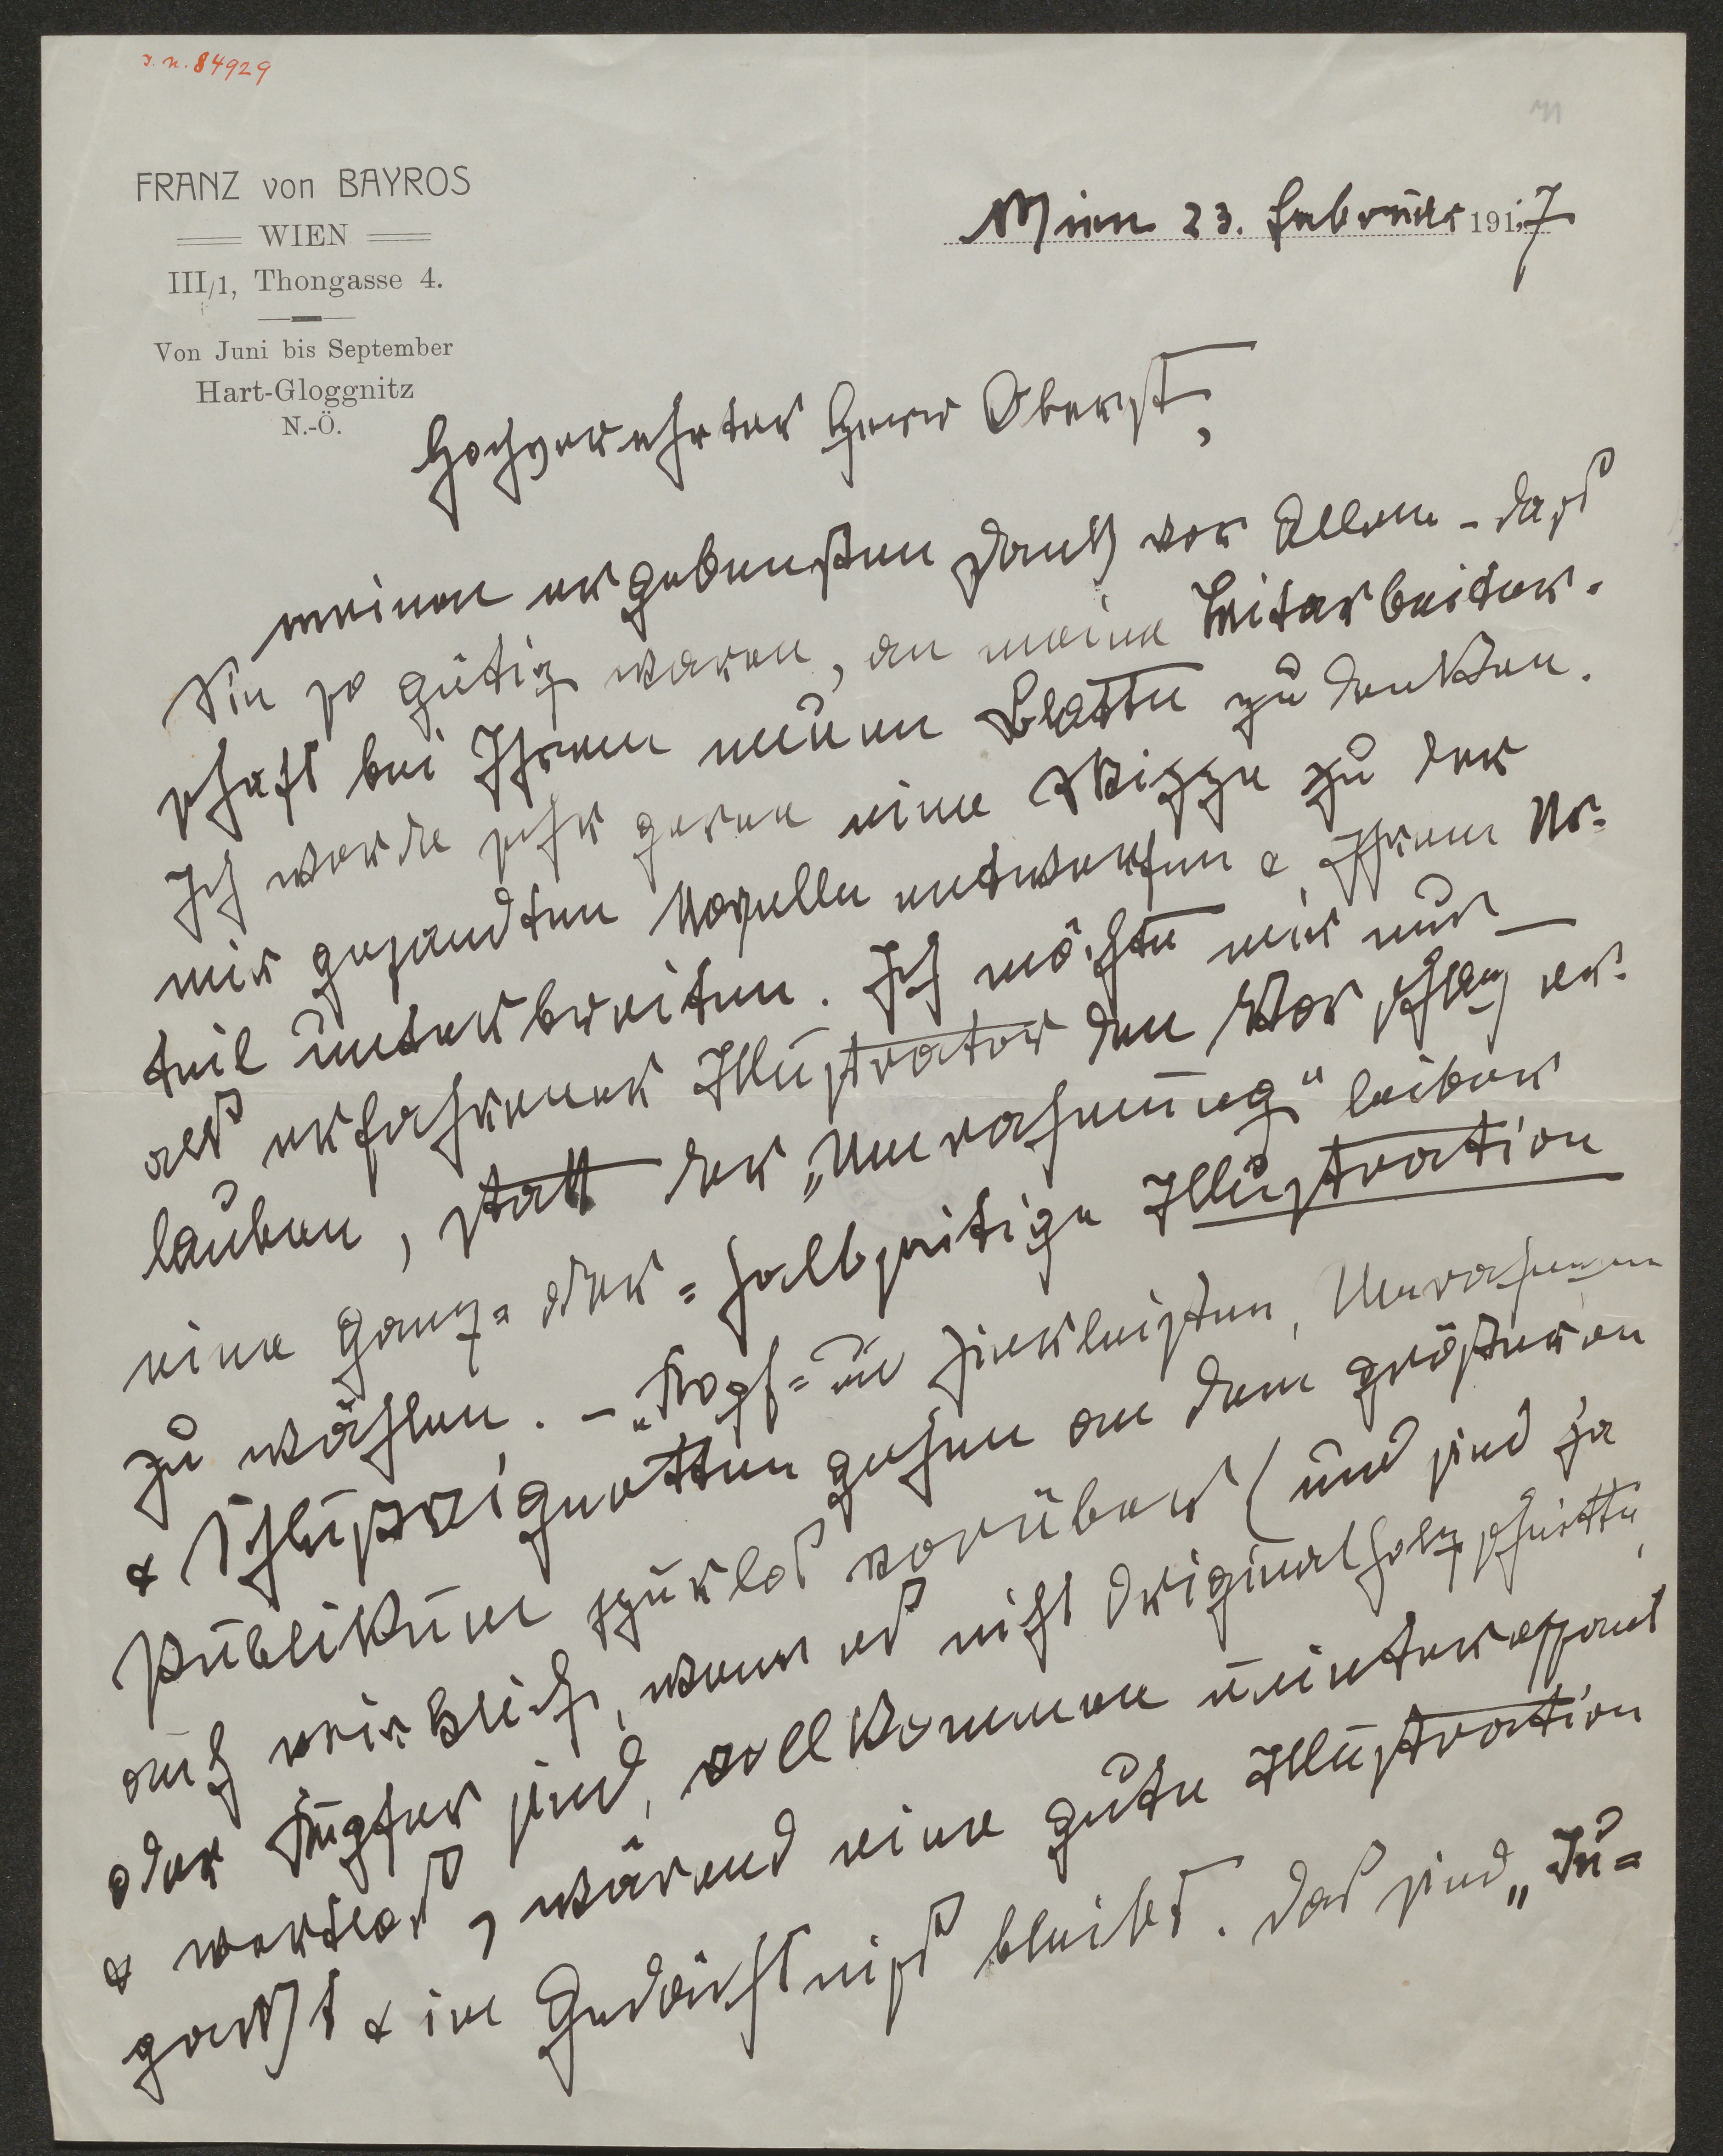 I. N. 84929
FRANZ von BAYROS
WIEN
III/1, Thongasse 4.
Von Juni bis September
Hart-Gloggnitz
N.-Ö.
Wien 23. Februar 1917
Hochverehrter Herr Oberst,
meinen ergebensten Dank vor Allem – dass
Sie so gütig waren, an meine Mitarbeiter-
schaft bei Ihrem neuen Blatte zu denken.
Ich werde sehr gerne eine Skizze zu der
mir gesandten Novelle entwerfen & Ihrem Ur-
teil unterbreiten. Ich möchte mir nur
als erfahrener Illustrator den Vorschlag er-
lauben, statt der „Umrahmung“ lieber
eine ganz- oder- halbseitige Illustration
zu wählen. – „Kopf- u Zierleisten, Umrahmungen
& Schlussvignetten gehen an dem grösseren
Publikum spurlos vorüber (und sind ja
auch wirklich, wenn es nicht Originalholzschnitte
oder Kupfer sind, vollkommen uninteressant
& wertlos, wärend eine gute Illustration
packt & im Gedächtniss bleibt. Das sind „In-